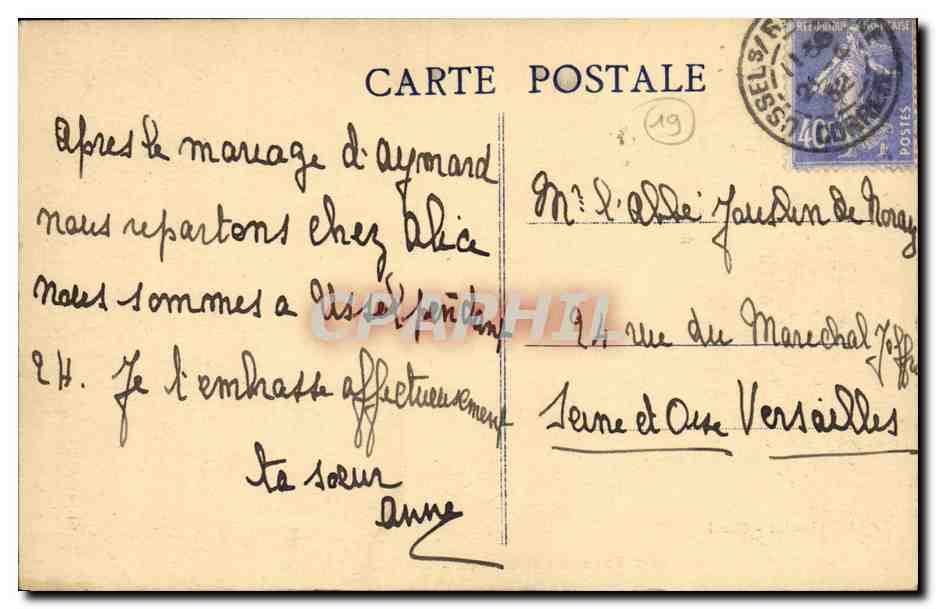 CARTE POSTALE
19
USSEL S/
CORREZE
40
POSTES
après le mariage d'Aymard
nous repartons chez Alice
nous sommes a Ussel pendant
24. Je t'embrasse affectueusement
ta sœur
anne
Mr l'abbé Jouslin de Noray
24 rue du Marechal Joffre
Seine et Oise Versailles
CPAPHIL